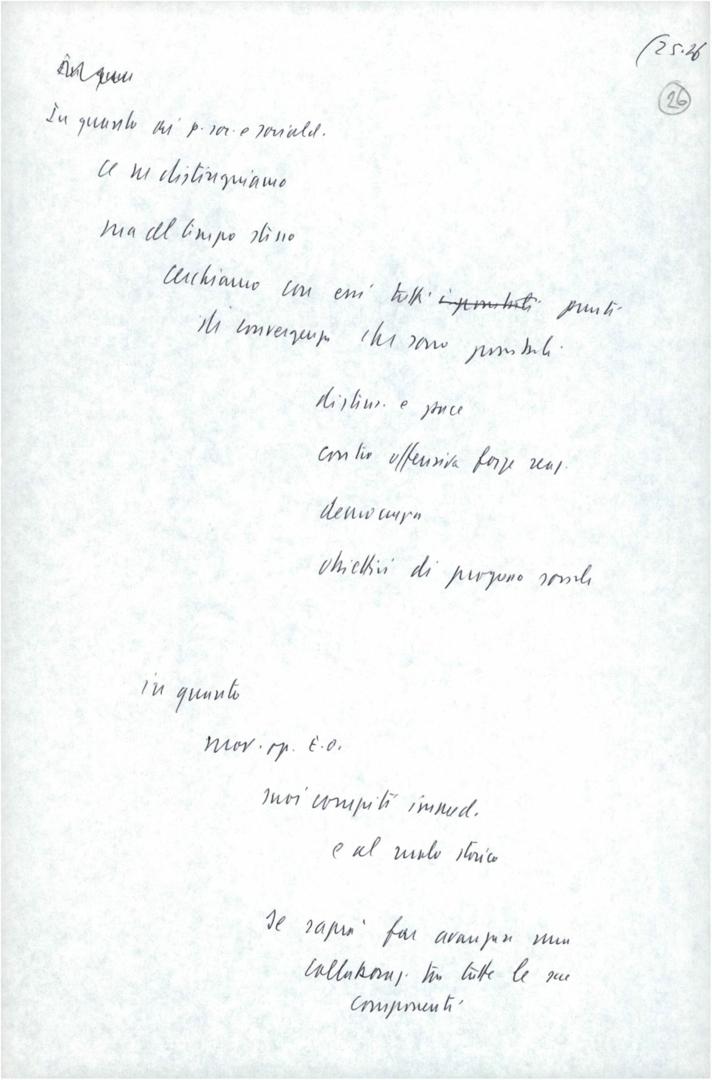 (25-26
26
In quanto
In quanto ai p. soc. e sociald.
ce ne distinguiamo
ma al tempo stesso
cerchiamo con essi tutti i possibili punti
di convergenza che sono possibili.
distens. e pace
contro offensiva forze reaz.
democrazia
obiettivi di progresso sociale
in quanto
mov. op. E.O.
suoi compiti immed.
e al ruolo storico
Se saprà far avanzare una
collaboraz. tra tutte le sue
componenti